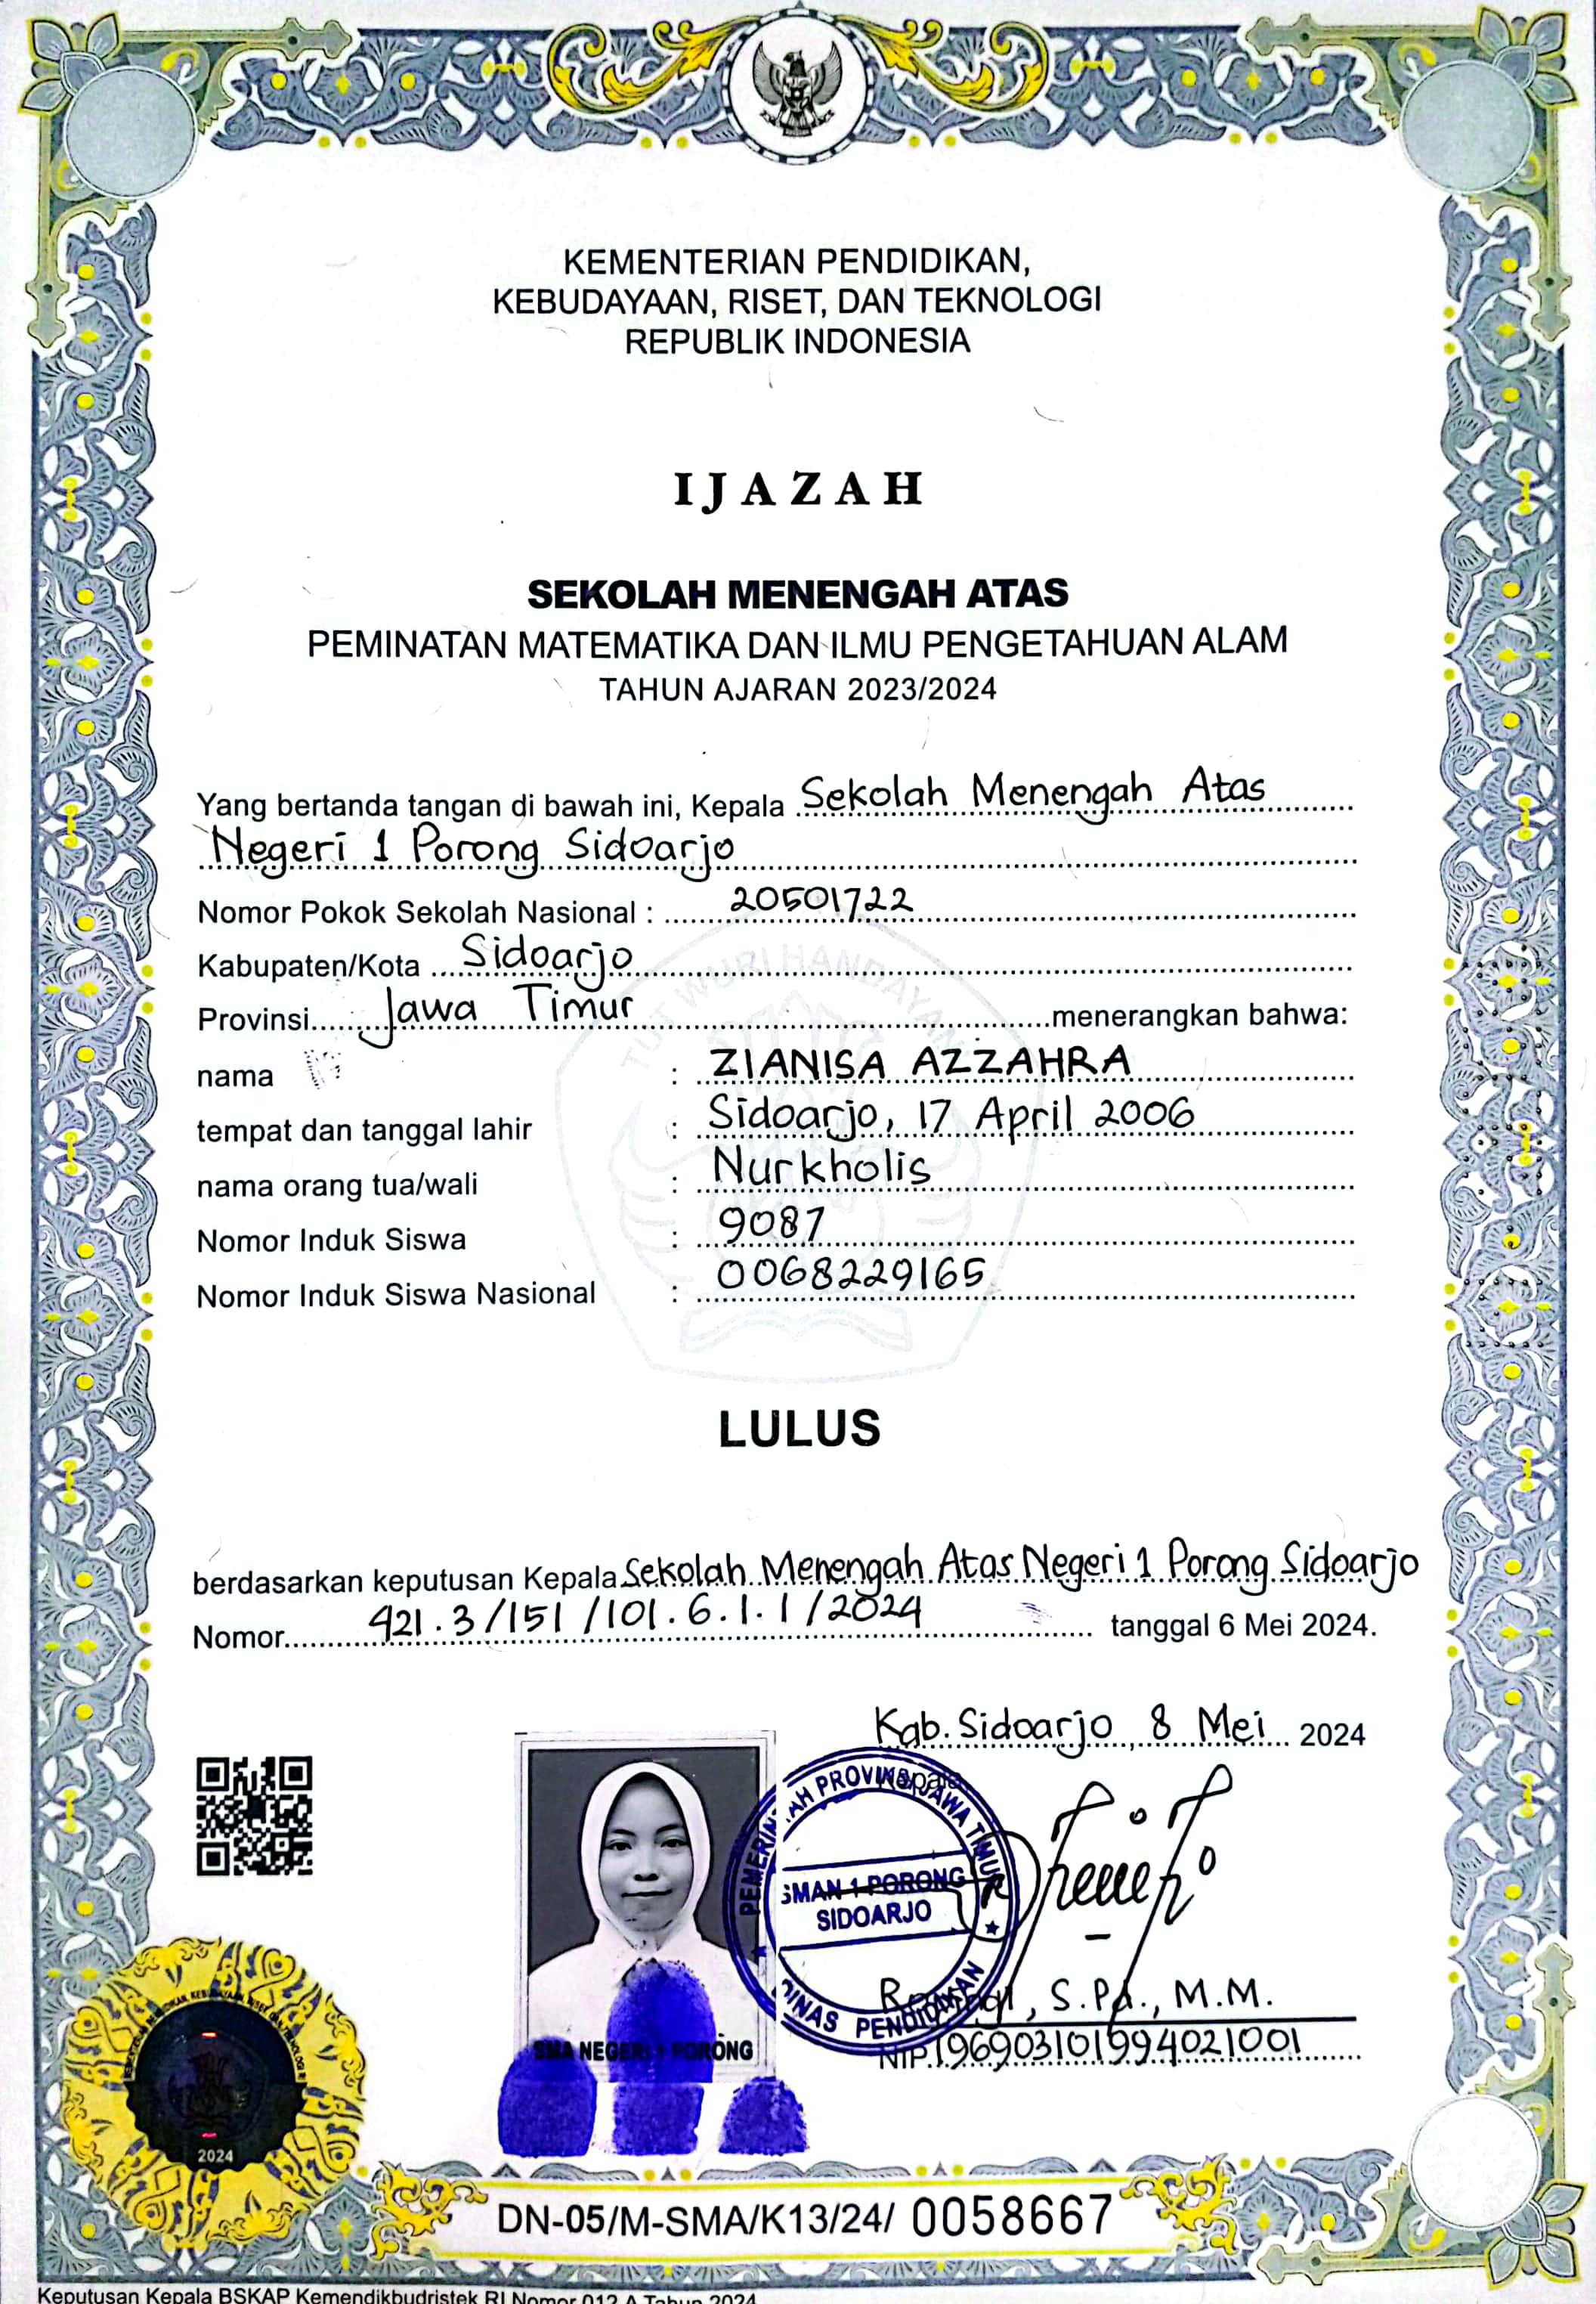 KEMENTERIAN PENDIDIKAN,
KEBUDAYAAN, RISET, DAN TEKNOLOGI
REPUBLIK INDONESIA
IJAZAH
SEKOLAH MENENGAH ATAS
PEMINATAN MATEMATIKA DAN ILMU PENGETAHUAN ALAM
TAHUN AJARAN 2023/2024
Yang bertanda tangan di bawah ini, Kepala Sekolah Menengah Atas
Negeri 1 Porong Sidoarjo
Nomor Pokok Sekolah Nasional : 20501722
Kabupaten/Kota Sidoarjo
Provinsi Jawa Timur menerangkan bahwa:
nama : ZIANISA AZZAHRA
tempat dan tanggal lahir : Sidoarjo, 17 April 2006
nama orang tua/wali : Nurkholis
Nomor Induk Siswa : 9087
Nomor Induk Siswa Nasional : 0068229165
TUT WURI HANDAYANI
LULUS
berdasarkan keputusan Kepala Sekolah Menengah Atas Negeri 1 Porong Sidoarjo
Nomor 421.3/151/101.6.1.1/2024 tanggal 6 Mei 2024.
Kab. Sidoarjo, 8 Mei 2024
Kepala
PEMERINTAH PROVINSI JAWA TIMUR
SMAN 1 PORONG
SIDOARJO
DINAS PENDIDIKAN
S.Pd., M.M.
NIP.196903101994021001
SMA NEGERI 1 PORONG
2024
DN-05/M-SMA/K13/24/ 0058667
Keputusan Kepala BSKAP Kemendikbudristek RI Nomor 012 A Tahun 2024